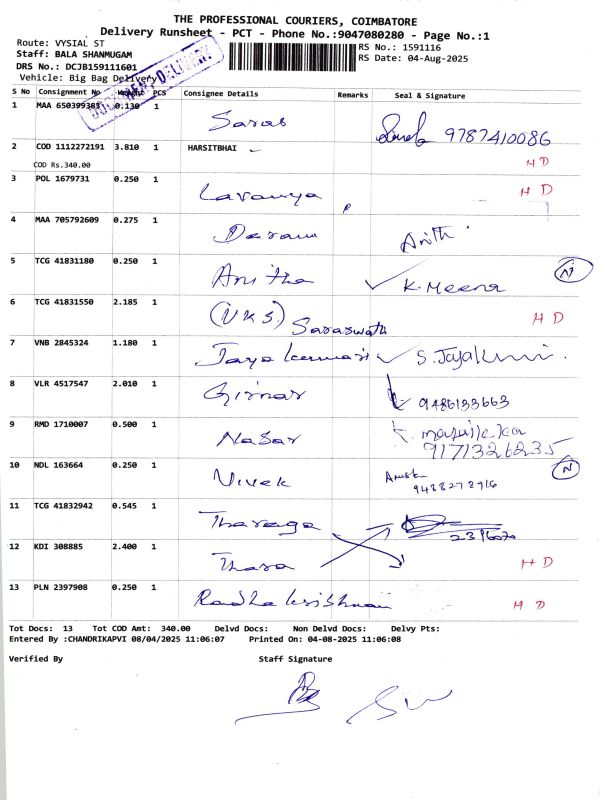 THE PROFESSIONAL COURIERS, COIMBATORE
Delivery Runsheet - PCT - Phone No.:9047080280 - Page No.:1
Route: VYSIAL ST
Staff: BALA SHANMUGAM
DRS No.: DCJB159111601
Vehicle: Big Bag Delivery
RS No.: 1591116
RS Date: 04-Aug-2025
DOCUMENT DELIVERY
S No Consignment No Weight PCS Consignee Details Remarks Seal & Signature
1 MAA 650399385 0.130 1 Saras 9787410086
2 COD 1112272191 3.810 1 HARSITBHAI HD
COD Rs.340.00
3 POL 1679731 0.250 1 Lavanya HD
4 MAA 705792609 0.275 1 Anith
5 TCG 41831180 0.250 1 Anitha K. Meena N
6 TCG 41831550 2.185 1 (VKS) Saraswath HD
7 VNB 2845324 1.180 1 Jayakumari S. Jayakumi.
8 VLR 4517547 2.010 1 Girnar 9486133663
9 RMD 1710007 0.500 1 Nasar K.
9171326235
10 NDL 163664 0.250 1 Vivek N
9488278716
11 TCG 41832942 0.545 1 Tharaga
12 KDI 308885 2.400 1 Thara HD
13 PLN 2397908 0.250 1 Radhakrishnan HD
Tot Docs: 13 Tot COD Amt: 340.00 Delvd Docs: Non Delvd Docs: Delvy Pts:
Entered By :CHANDRIKAPVI 08/04/2025 11:06:07 Printed On: 04-08-2025 11:06:08
Verified By Staff Signature